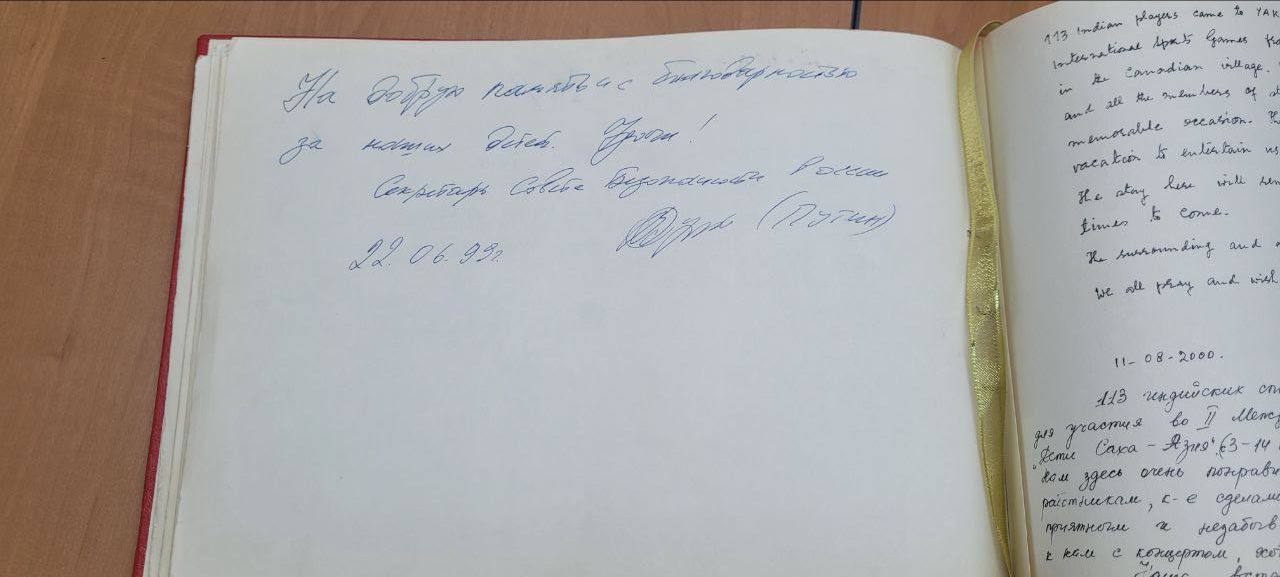 На добрую память и с благодарностью
за наших детей. Удачи!
Секретарь Совета Безопасности России
(Путин)
22.06.99г.
113 Indian players came to YAK
International Sports Games
in the Canadian village.
and all the members of
memorable occasion.
vacation to entertain us
The stay here will
times to come.
The surrounding and
We all pray and wish
11-08-2000.
113 индийских
для участия во II Межд
"Дети Саха-Азия" (3-14
Нам здесь очень понрави
работникам, к-е сделали
приятным и незабыв
к нам с концертом,